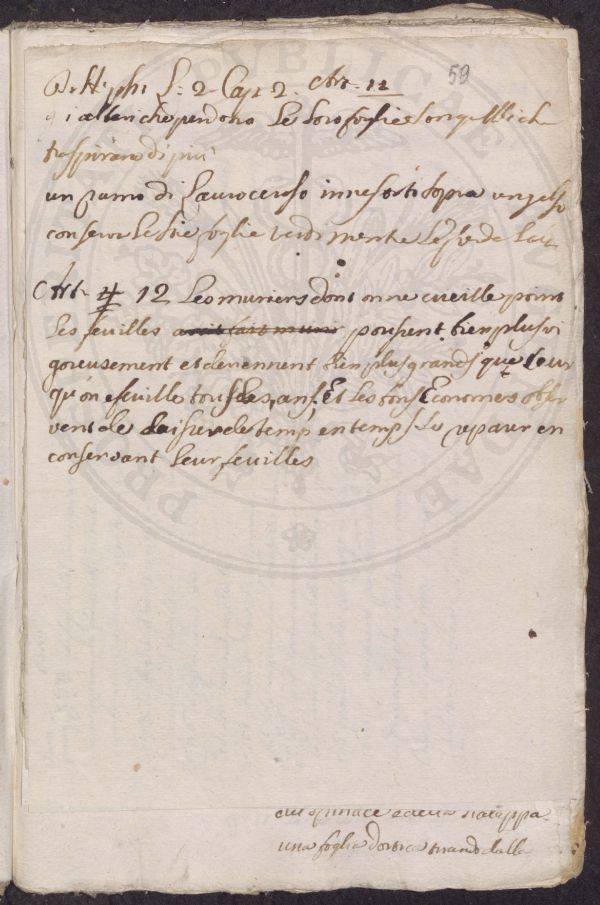 59
Delphi L: 2 Cap 2. Art. 12
gi alberi che perdono Le loro foglie son quelli che
traspirano di piu
un ramo di Lauroceraso innestato sopra un gelso
conserva Le sue foglie verdi mente
Art. 4 12 Les muriers dont on ne cueille point
Les feuilles poussent bien plus vi
goreusement et deviennent bien plus grands que ceux
qu'on efeuille tous les ans, Et Les bons Economes obser
vent de laisser de temp en temps Le reparer en
conservant leur feuilles
una foglia d'ortica tirando dalla